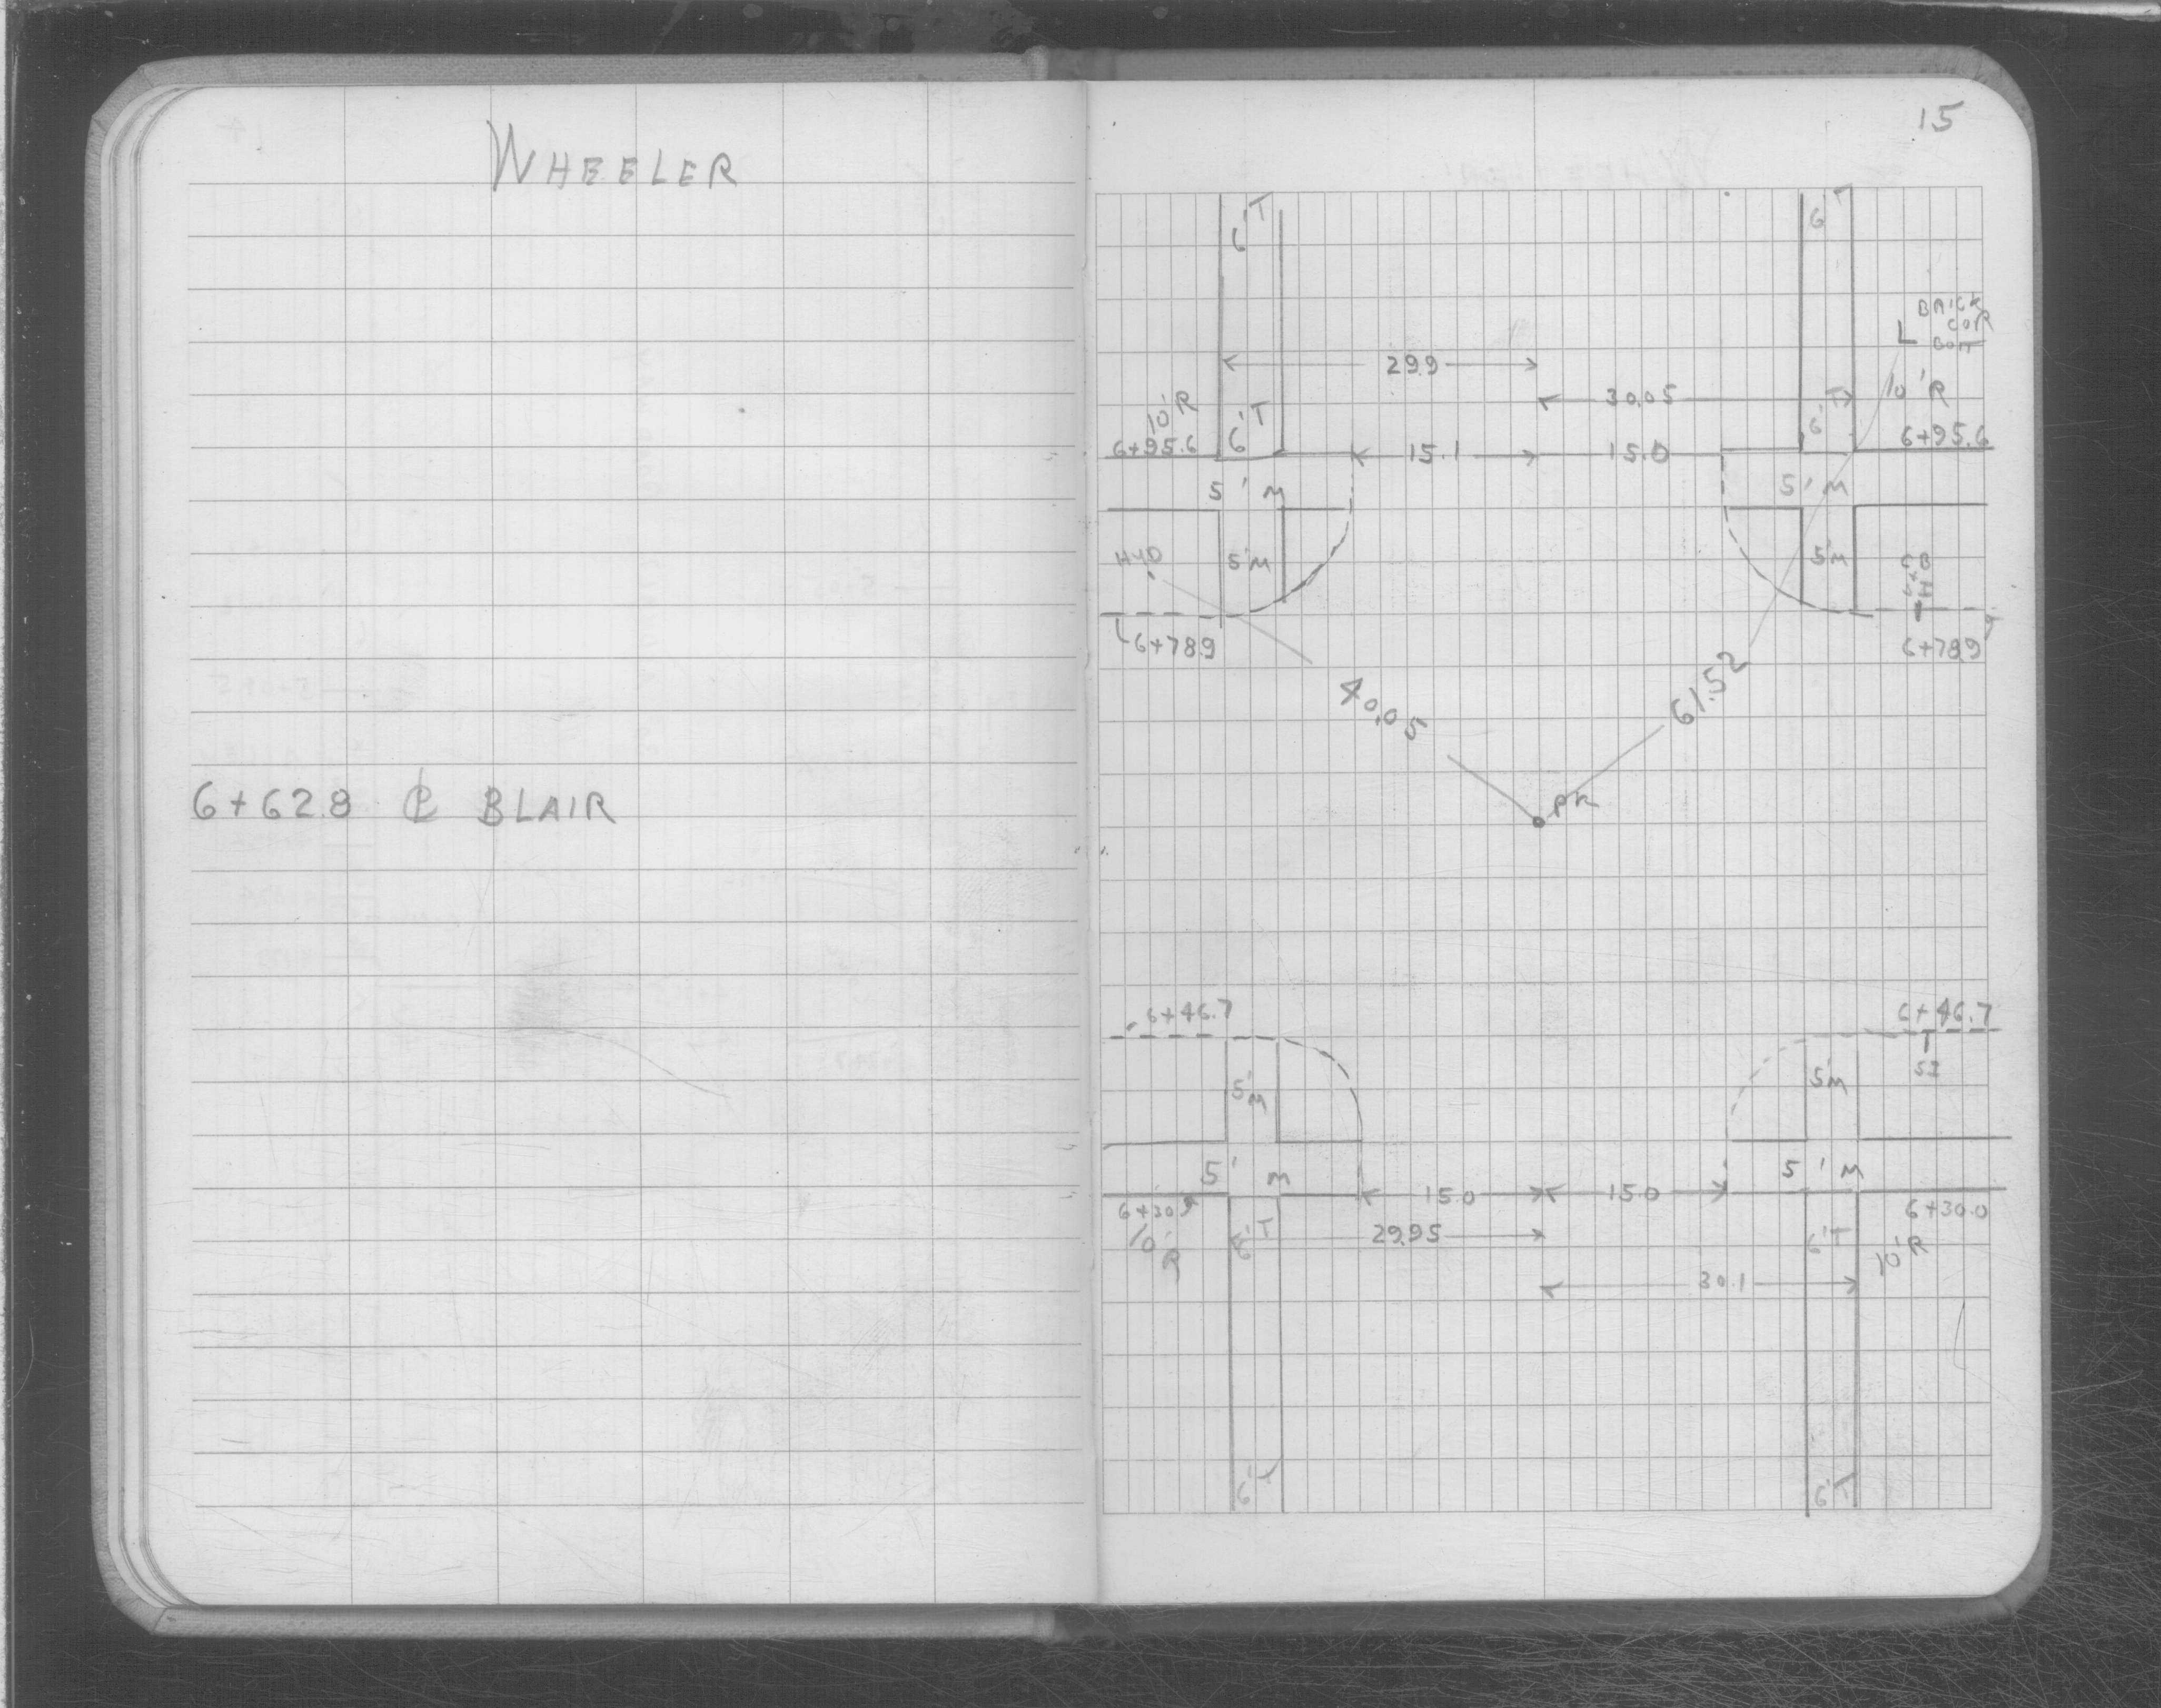 WHEELER
6+62.8 ℄ BLAIR
15
6'T
6'T
BRICK
COR
29.9
30.05
10'R
10'R
6'T
6'T
6+95.6
15.1
15.0
6+95.6
5'M
5'M
HYD
5'M
5'M
CB
6+78.9
6+78.9
40.05
61.52
PK
6+46.7
6+46.7
5'M
5'M
SI
5'M
5'M
15.0
15.0
6+30.9
6+30.0
10'R
6'T
29.95
6'T
10'R
30.1
6'T
6'T